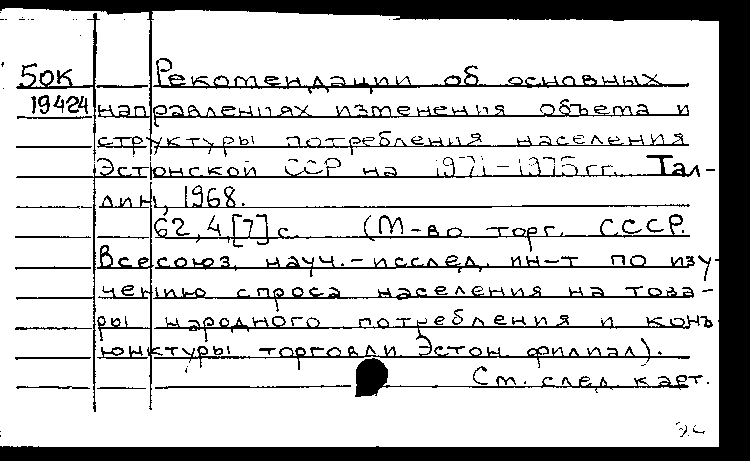 50К Рекомендации об основных
19424 направлениях изменения объема и
структуры потребления населения
Эстонской ССР на 1971-1975гг. Тал-
лин, 1968.
62,4,[7]с. (М-во торг. СССР.
Всесоюз. науч.-исслед. ин-т по изу-
чению спроса населения на това-
ры народного потребления и конъ-
юнктуры торговли. Эстон. филиал).
См. след. карт.